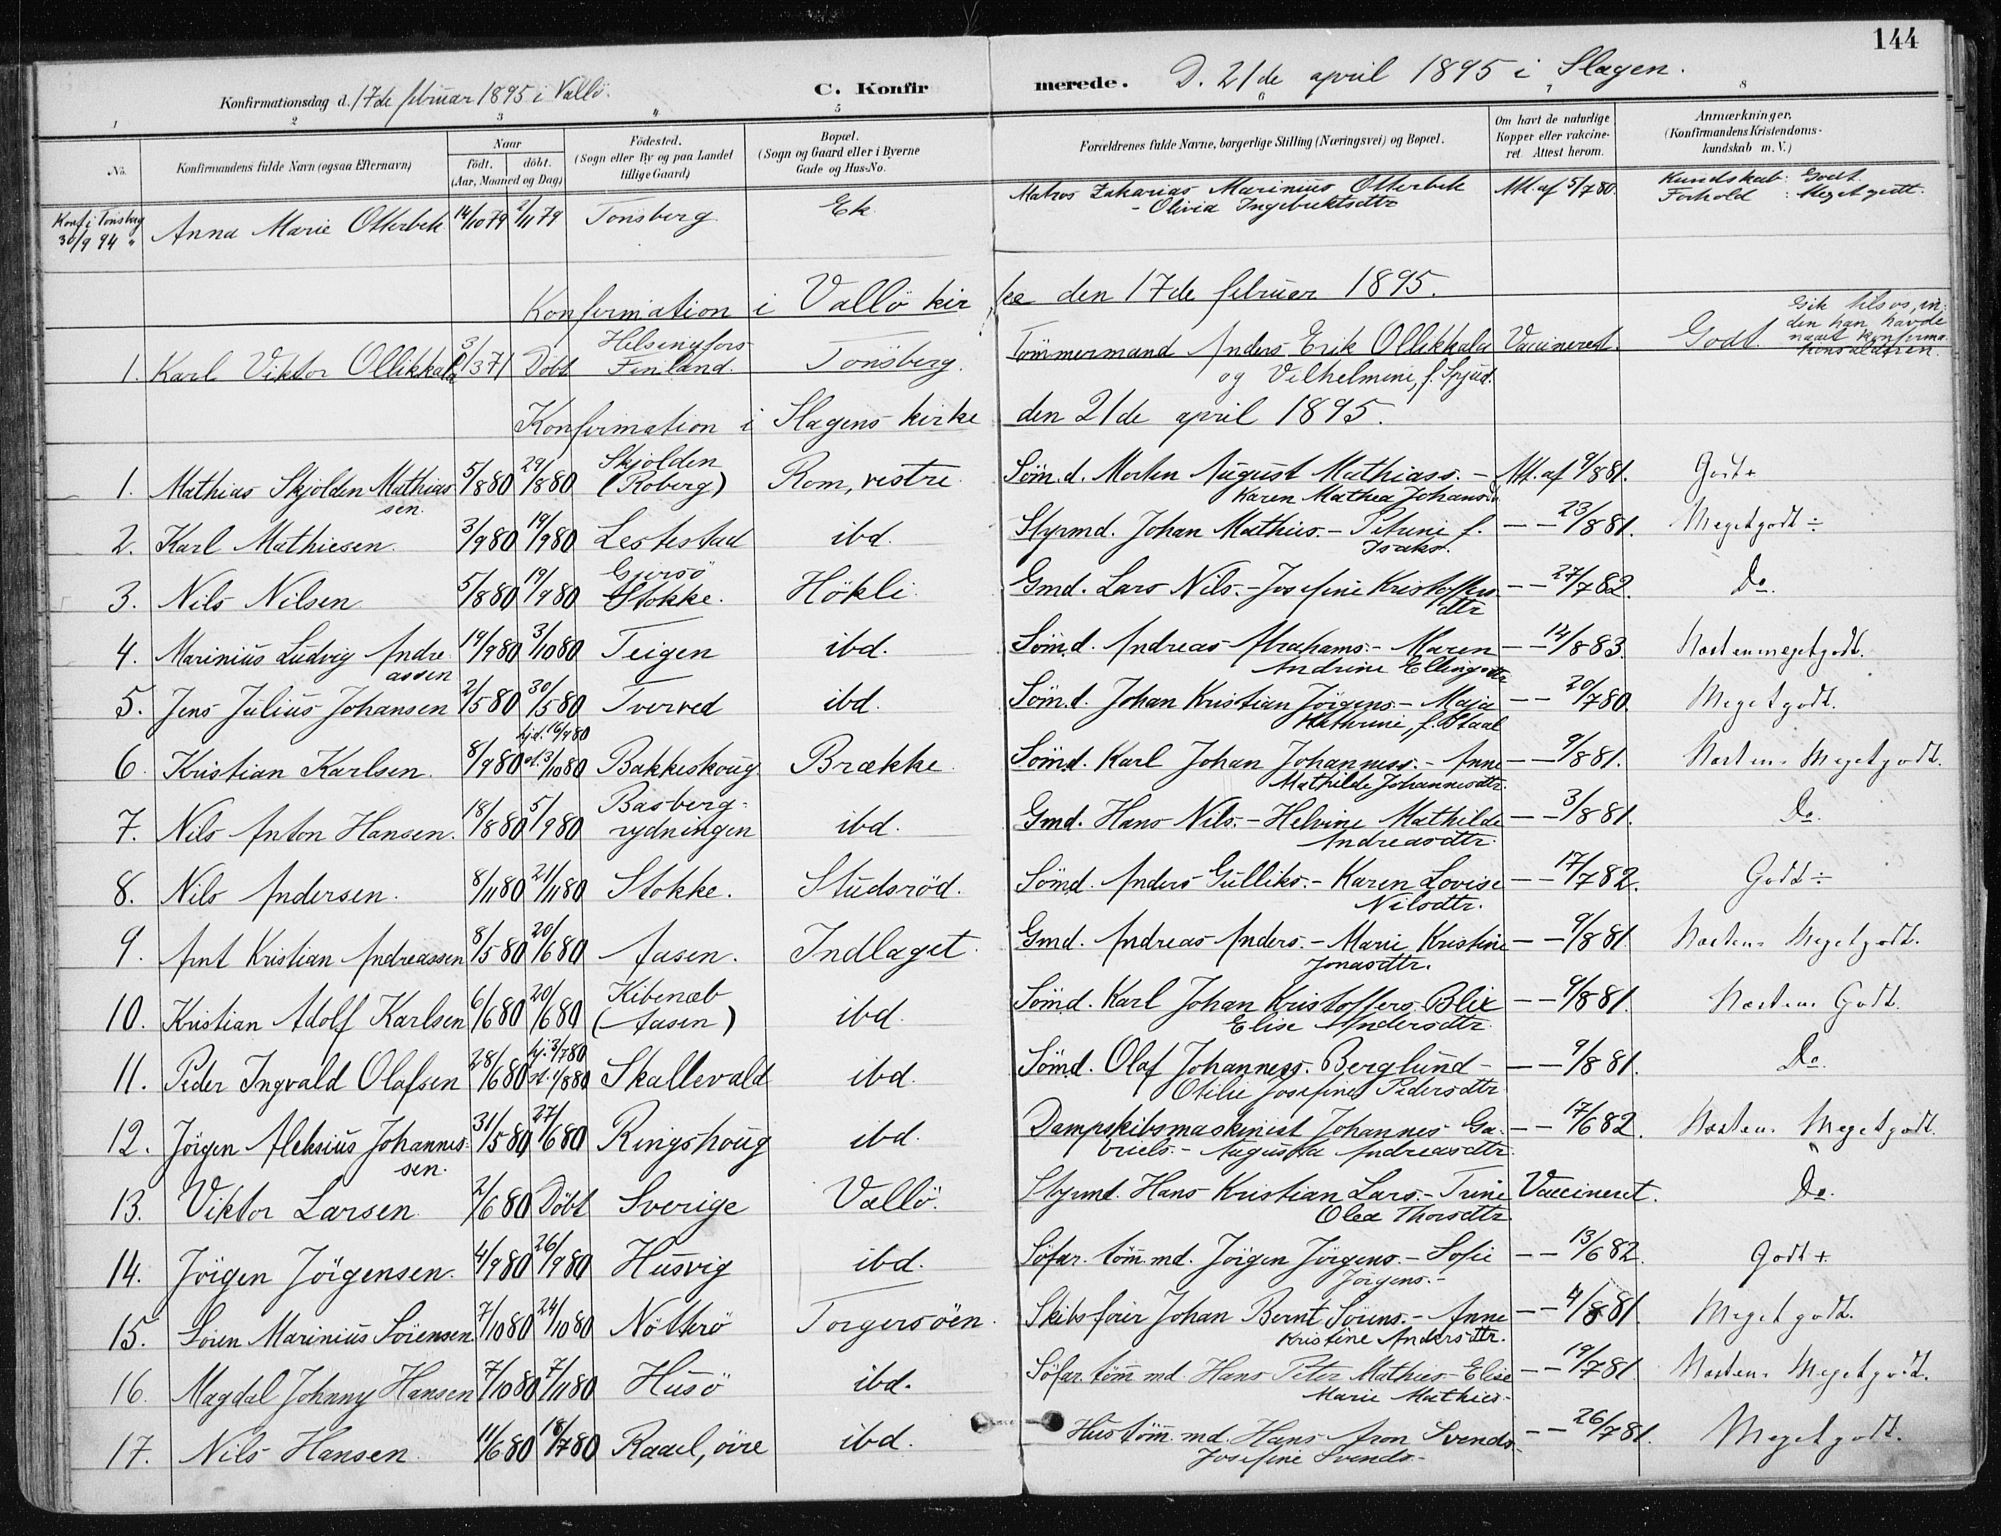 144
Konfirmationsdag d. 17de februar 1895 i Vallö. C. Konfirmerede. D. 21de april 1895 i Slagen.
1 2 3 4 5 6 7 8
No. Konfirmandens fulde Navn (ogsaa Efternavn) Naar födt. döbt. (Aar, Maaned og Dag) Födested. (Sogn eller By og paa Landet tillige Gaard) Bopæl. (Sogn og Gaard eller i Byerne Gade og Hus-No. Forældrenes fulde Navne, borgerlige Stilling (Næringsvei) og Bopæl. Om havt de naturlige Kopper eller vakcineret. Attest herom. Anmærkninger, (Konfirmandens Kristendomskundskab m. V.)
Konf. i Tonsberg 30/9 94 " Anna Marie Otterbek 14/10 79 2/11 79 Tonsberg Ek Matros Zakarias Marinius Otterbek - Olivia Ingebrektsdtr Att. af 5/7 80. Kundskab: Godt Forhold: Meget godt.
Konfirmation i Vallö kirke den 17de februar 1895.
1. Karl Viktor Ollikkala 3/1 371 Döbt Helsingfors Finland. Tonsberg. Tömmermand Anders Erik Ollikkala og Vilhelmine, f. Spjud. Vaccineret. Godt. Gik tilsos, inden han havde naaet konfirmationsalderen.
Konfirmation i Slagens kirke den 21de april 1895.
1. Mathias Skjolden Mathiassen. 5/8 80 29/8 80 Skjolden (Roberg) Rom, vestre. Sömd. Morten August Mathiass. - Karen Mathea Johansd. Att. af 9/8 81. Godt +
2. Karl Mathiesen. 3/9 80 19/9 80 Lestestad ibd. Styrmd. Johan Mathies. - Petrine f. Isaks. — — 23/8 81. Meget godt ÷
3. Nils Nilsen 5/8 80 19/9 80 Gjersö Stokke. Hökli. Gmd. Lars Nils. - Josefine Kristoffersdtr — — 27/7 82. Do.
4. Marinius Ludvig Andreassen 19/9 80 3/10 80 Teigen ibd. Sömd. Andreas Abrahams. - Maren Andrine Ellingsdtr — — 14/8 83. Næsten meget godt.
5. Jens Julius Johansen 2/5 80 30/5 80 Tverved ibd. Sömd. Johan Kristian Jörgens. - Maja Kathrine, f. Staal — — 20/7 80. Meget godt.
6. Kristian Karlsen. 8/9 80 hjd. 10/9 80 st. 3/10 80 Bakkeskoug Brække. Sömd. Karl Johan Johanness. - Anne Mathilde Johannesdtr. — — 9/8 81. Næsten Meget godt.
7. Nils Anton Hansen. 18/8 80 5/9 80 Basbergrydningen ibd. Gmd. Hans Nils. - Helvine Mathilde Andreasdtr. — — 3/8 81. Do.
8. Nils Andersen. 8/11 80 21/11 80 Stokke. Studsröd. Sömd. Anders Gulliks. - Karen Lovise Nilsdtr. — — 17/7 82. Godt ÷
9. Arnt Kristian Andreassen 8/5 80 20/6 80 Aasen. Indlaget. Gmd. Andreas Anders. - Marie Kristine Jonasdtr. — — 9/8 81. Næsten Meget godt.
10. Kristian Adolf Karlsen 6/6 80 20/6 80 Kibenæb (Aasen) ibd. Sömd. Karl Johan Kristoffers. Blix Elise Andersdtr. — — 9/8 81. Næsten Godt.
11. Peder Ingvald Olafsen 28/6 80 hj. 3/7 80 st. 1/8 80 Skallevald ibd. Sömd. Olaf Johanness. Berglund - Otilie Josefine Pedersdtr — — 9/8 81. Do.
12. Jörgen Aleksius Johannessen. 31/5 80 27/6 80 Ringshoug ibd. Dampskibsmaskinist Johannes Gabriels. - Augusta Andreasdtr. — — 17/6 82. Næsten Meget godt.
13. Viktor Larsen 2/6 80 Döbt Sverige Vallö. Styrmd. Hans Kristian Lars. - Trine Olea Thorsdtr. Vaccineret. Do.
14. Jörgen Jörgensen. 4/9 80 26/9 80 Husvig ibd. Söfar. tömmd. Jörgen Jörgens. - Sofie Jörgens. - — — 13/6 82. Godt +
15. Sören Marinius Sörensen 7/10 80 24/10 80 Nötterö Torgersöen. Skibsförer Johan Bernt Sörens. - Anne Kristine Andersdtr. — — 4/8 81. Meget godt.
16. Magdal Johnny Hansen 7/10 80 7/11 80 Husö ibd. Söfar. tömmd. Hans Peter Mathies - Elise Marie Mathies - — — 19/7 81. Næsten Meget godt.
17. Nils Hansen 11/6 80 18/7 80 Raael, övre ibd. Hustömmd. Hans Aron Svends. - Josefine Svends. - — — 26/7 81. Meget godt.